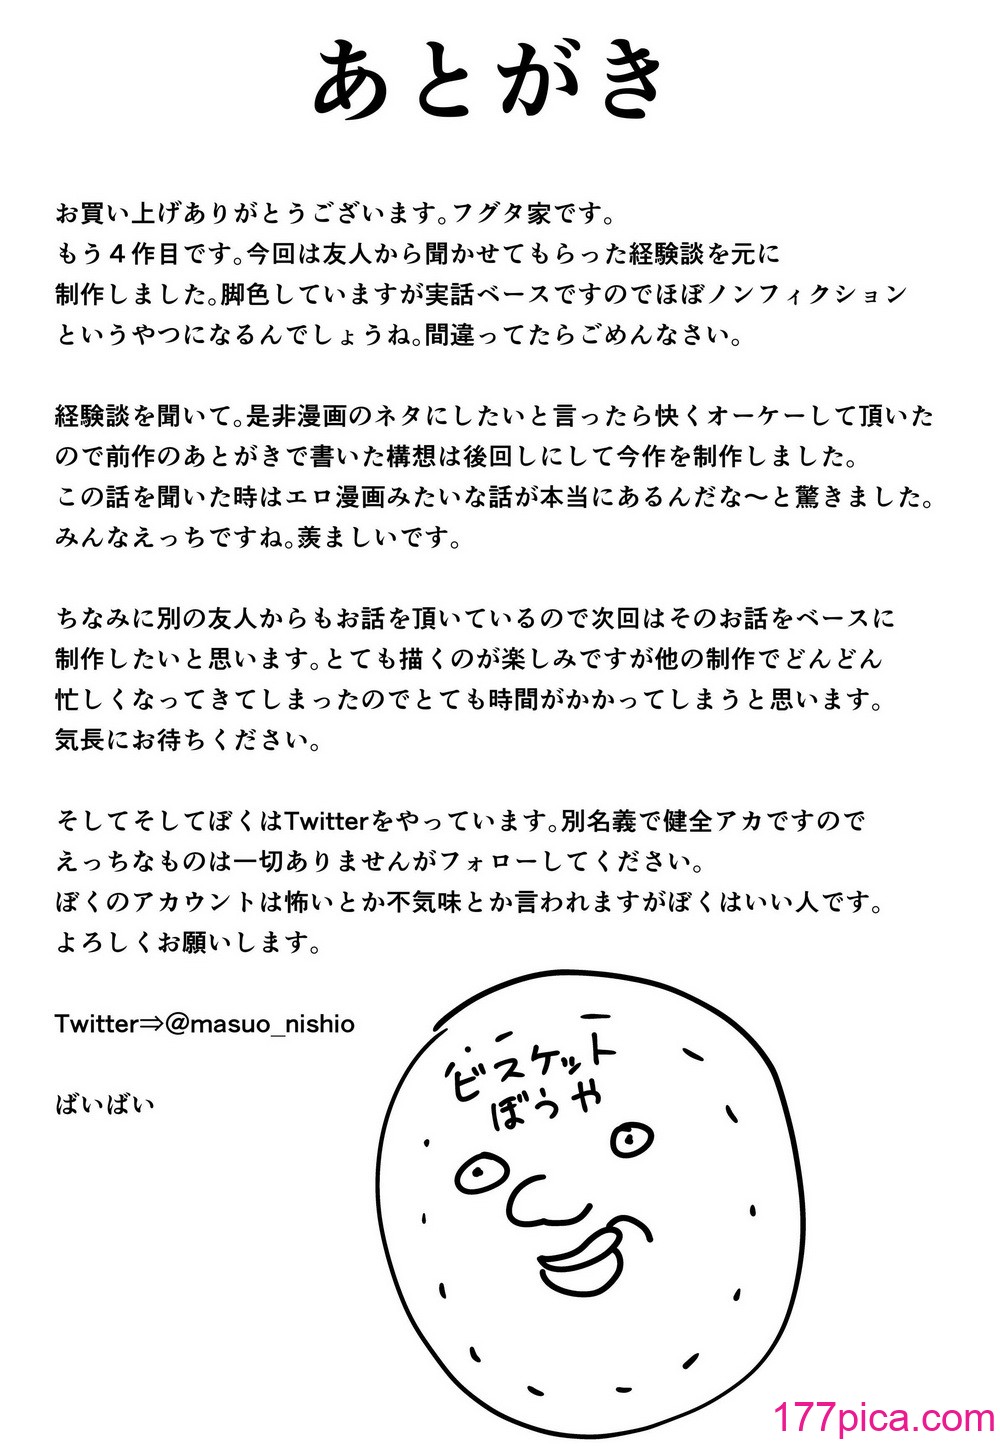 あとがき
お買い上げありがとうございます。フグタ家です。
もう４作目です。今回は友人から聞かせてもらった経験談を元に
制作しました。脚色していますが実話ベースですのでほぼノンフィクション
というやつになるんでしょうね。間違ってたらごめんなさい。
経験談を聞いて。是非漫画のネタにしたいと言ったら快くオーケーして頂いた
ので前作のあとがきで書いた構想は後回しにして今作を制作しました。
この話を聞いた時はエロ漫画みたいな話が本当にあるんだな〜と驚きました。
みんなえっちですね。羨ましいです。
ちなみに別の友人からもお話を頂いているので次回はそのお話をベースに
制作したいと思います。とても描くのが楽しみですが他の制作でどんどん
忙しくなってきてしまったのでとても時間がかかってしまうと思います。
気長にお待ちください。
そしてそしてぼくはTwitterをやっています。別名義で健全アカですので
えっちなものは一切ありませんがフォローしてください。
ぼくのアカウントは怖いとか不気味とか言われますがぼくはいい人です。
よろしくお願いします。
Twitter⇒@masuo_nishio
ばいばい
ビスケット
ぼうや
177pica.com